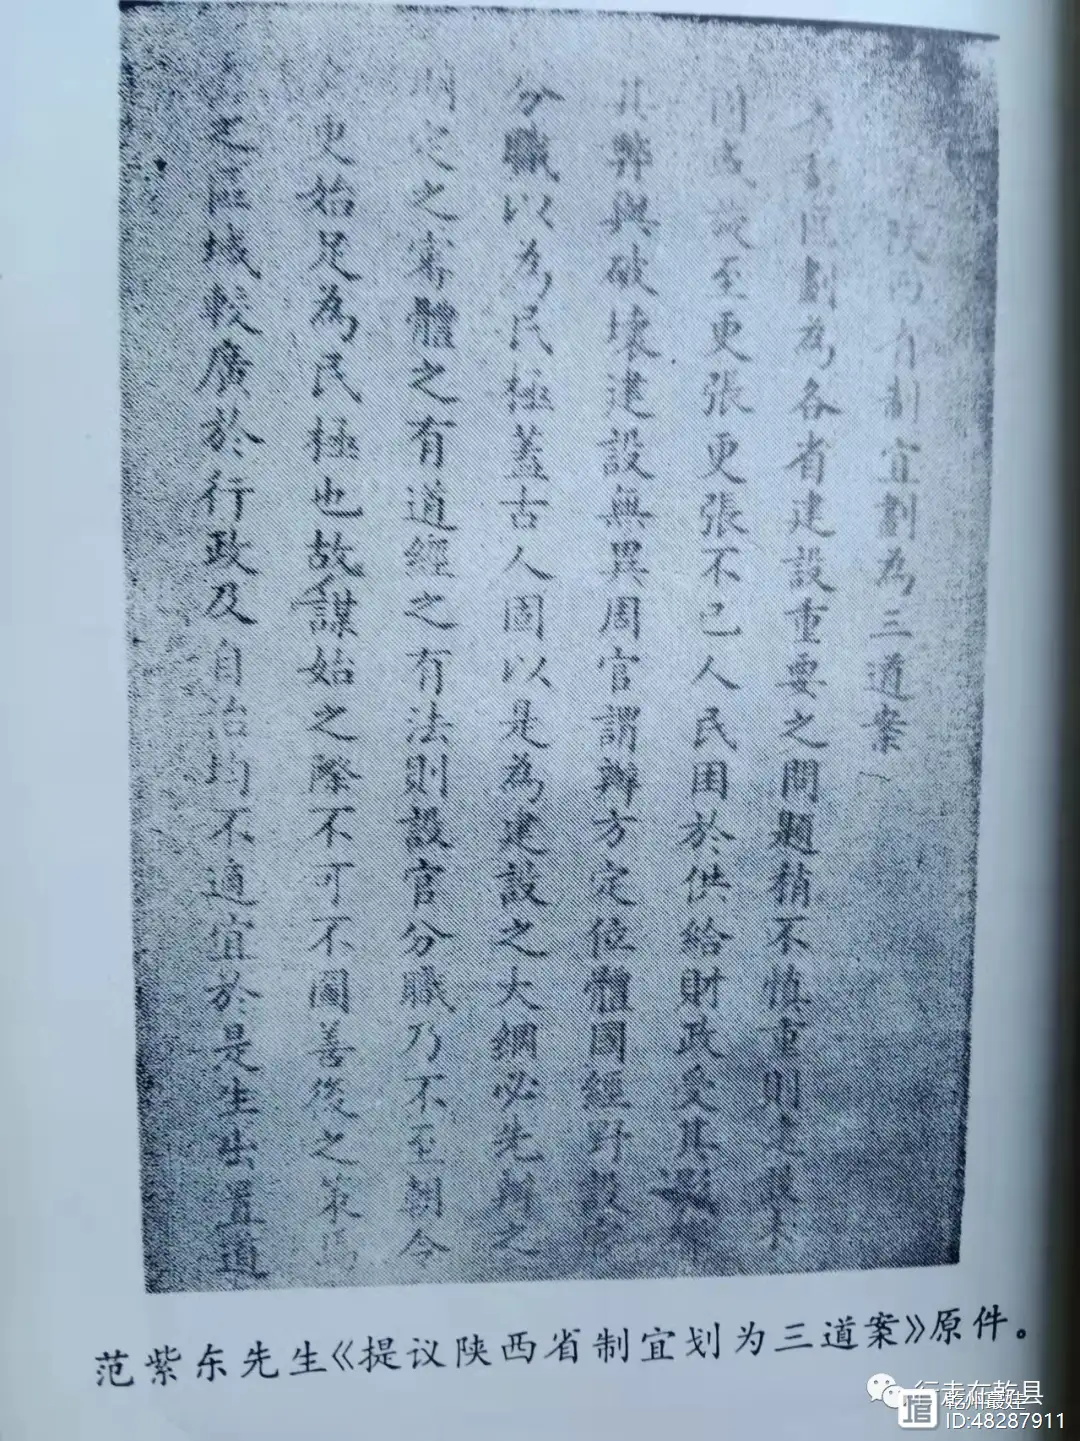 陝西省制宜劃為三道案
區劃為各省建設重要之問題稍不慎重則
至更張更張不已人民困於供給財政受其影
其弊與破壞建設無異周官謂辦方定位體國經野設官
分職以為民極蓋古人固以是為建設之大綱必先辨之
之有體之有道經之有法則設官分職乃不至朝令
更始足為民極也故謀始之際不可不圖善後之策
之區域較廣於行政及自治均不適宜於是生出置道
范紫东先生《提议陕西省制宜划为三道案》原件。
行走在乾县
乾州最娃
ID:48287911